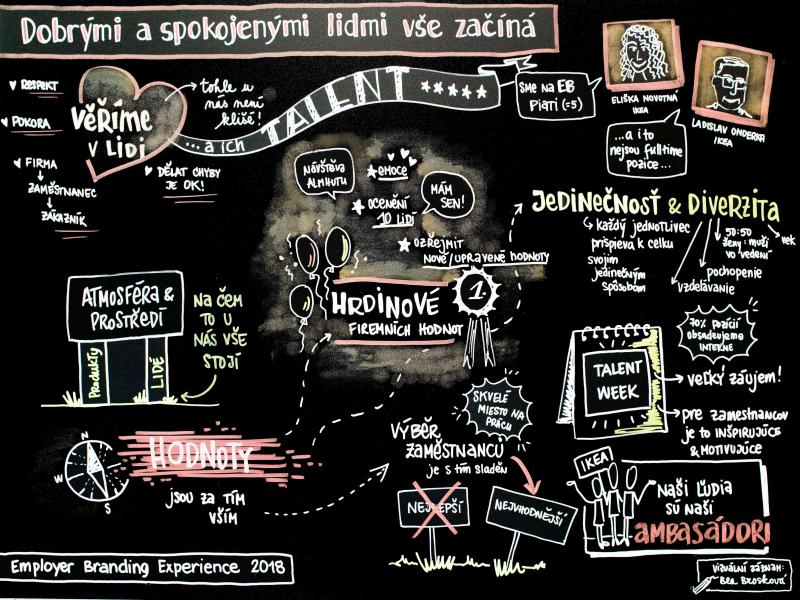 Dobrými a spokojenými lidmi vše začíná
♥ RESPEKT
♥ POKORA
♥ FIRMA
ZAMĚSTNANEC
ZÁKAZNÍK
VĚŘÍME
V LIDI
tohle u
nás není
klišé!
♥ DĚLAT CHYBY
JE OK!
...a ich
TALENT
SME NA EB
PIATI (=5)
ELIŠKA NOVOTNÁ
IKEA
LADISLAV ONDERKA
IKEA
...a i to
nejsou fulltime
pozice...
NÁVŠTĚVA
ALMHUTU
EMOCE
OCENĚNÍ
10 LIDÍ
MÁM
SEN!
OZŘEJMIT
NOVÉ/UPRAVENÉ HODNOTY
HRDINOVÉ
FIREMNÍCH HODNOT
1.
JEDINEČNOSŤ & DIVERZITA
každý jednotlivec
prispieva k celku
svojim
jedinečným
spôsobom
50:50
ženy:muži
vo vedení
vek
pochopenie
vzdelávanie
ATMOSFÉRA &
PROSTŘEDÍ
PRODUKTY
LIDÉ
NA ČEM
TO U
NÁS VŠE
STOJÍ
70% POZÍCIÍ
obsadzujeme
INTERNE
TALENT
WEEK
VEĽKÝ ZÁUJEM!
pre zamestnancov
je to INŠPIRUJÚCE
& MOTIVUJÚCE
SKVELÉ
MIESTO NA
PRÁCU
VÝBĚR
ZAMĚSTNANCŮ
je s tím sladěn
NEJLEPŠÍ
NEJVHODNĚJŠÍ
N
W
S
HODNOTY
jsou za tím
vším
IKEA
NAŠI ĽUDIA
SÚ NAŠI
AMBASÁDORI
Employer Branding Experience 2018
VIZUÁLNÍ ZÁZNAM:
Bea Brosková